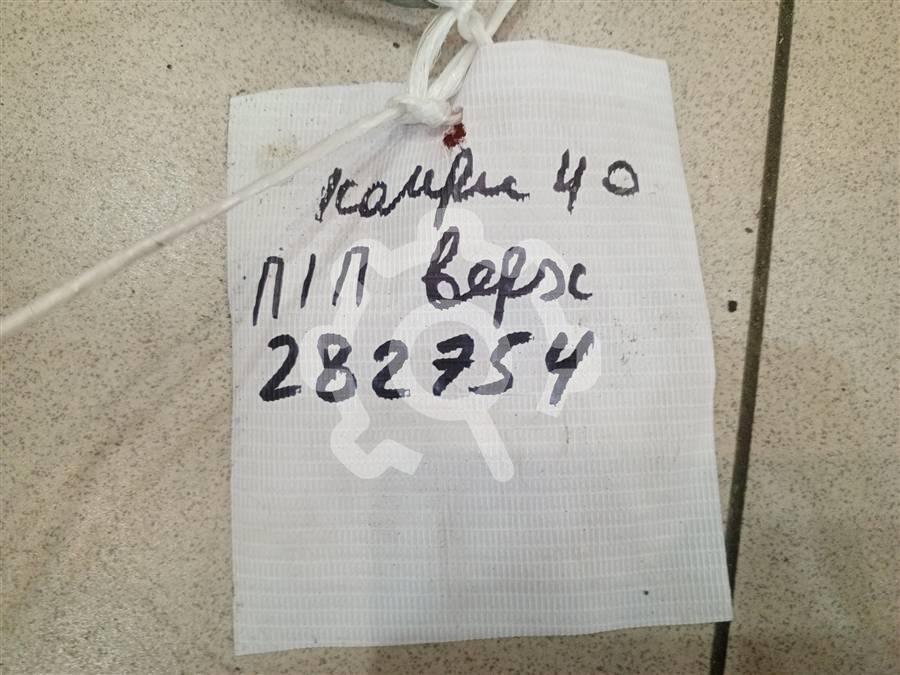 камри 40
П/П верх
282754